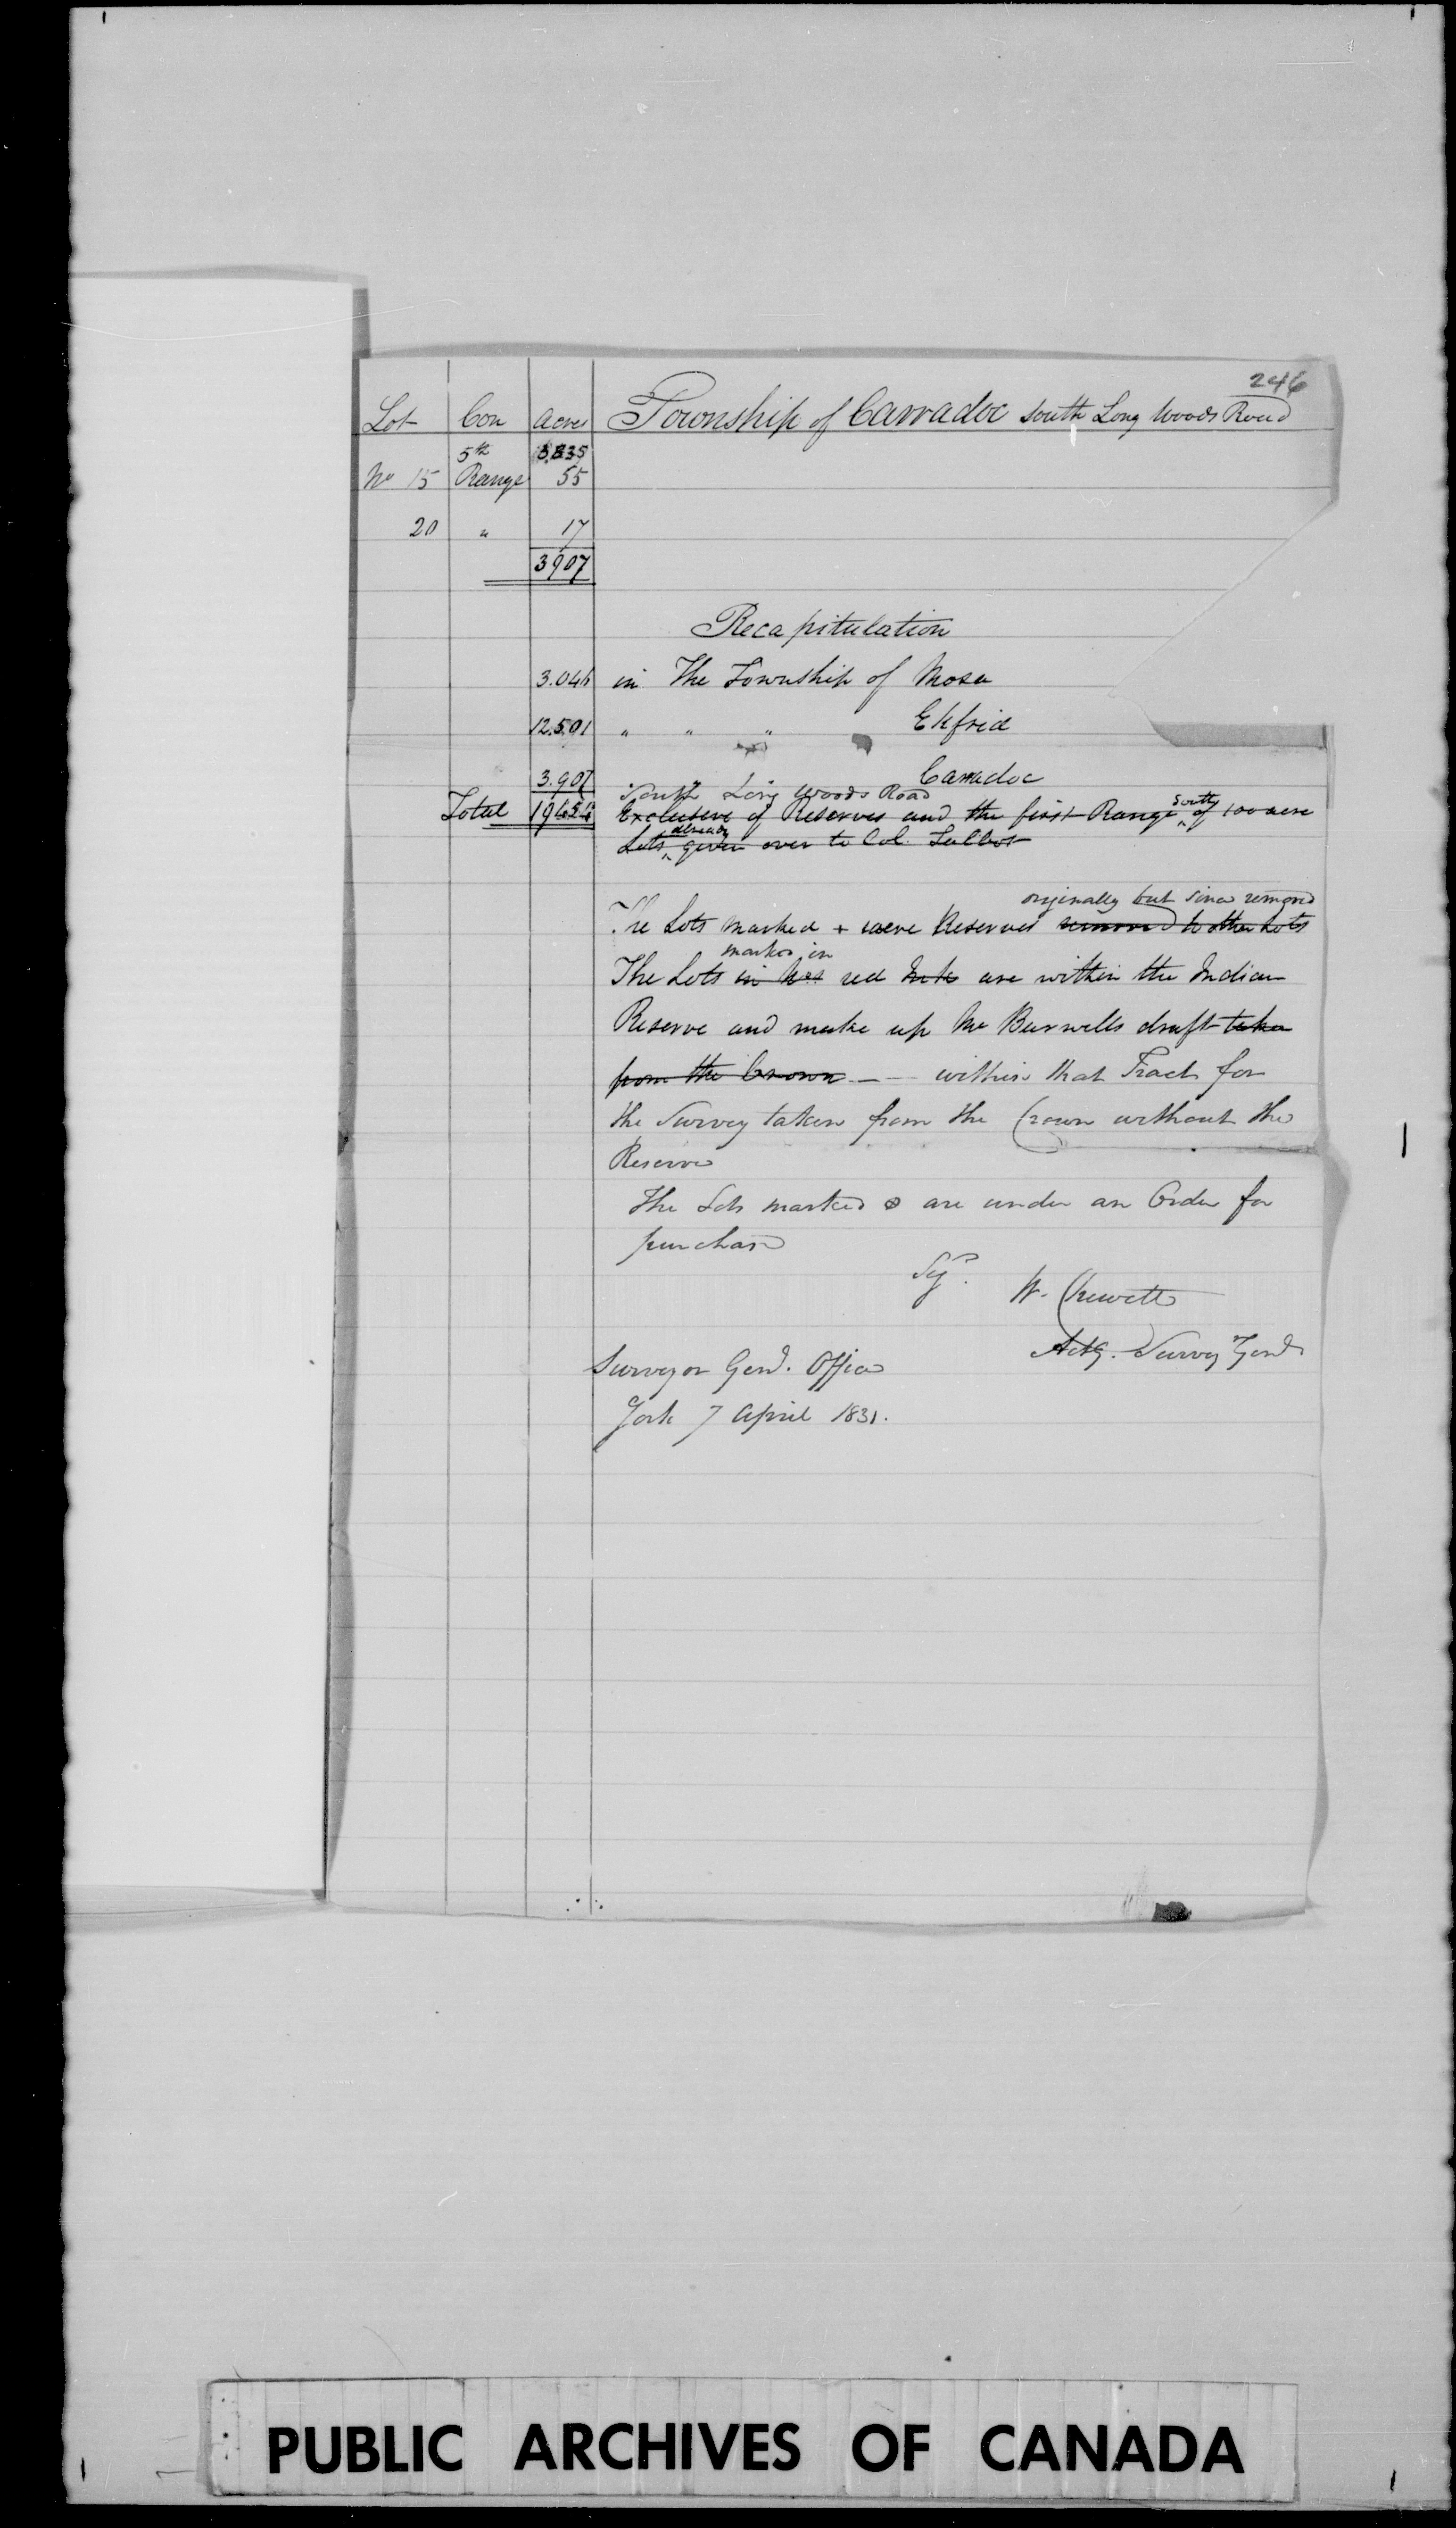 246
Lot Con Acres Township of Carradoc South Long Woods Road
5th 3.835
No 15 Range 55
20 " 17
3907
Recapitulation
3.046 in The Township of Mosa
12.501 " " " Ekfrid
3.907 " " Carradoc
South Long Woods Road
Total 19454 Exclusive of Reserves and the first Range South of 100 acre
Lots already given over to Col. Talbot
originally but since removed
The Lots marked + were Reserves removed to other Lots
marked in
The Lots in red Ink are within the Indian
Reserve and make up Mr Burwells draft taken
from the Crown — — within that Tract for
the Survey taken from the Crown without the
Reserve
The Lots marked ⊗ are under an Order for
purchase
Sigd. W. Chewett
Actg. Survey Genl
Surveyor Genl. Office
York 7 April 1831.
PUBLIC ARCHIVES OF CANADA